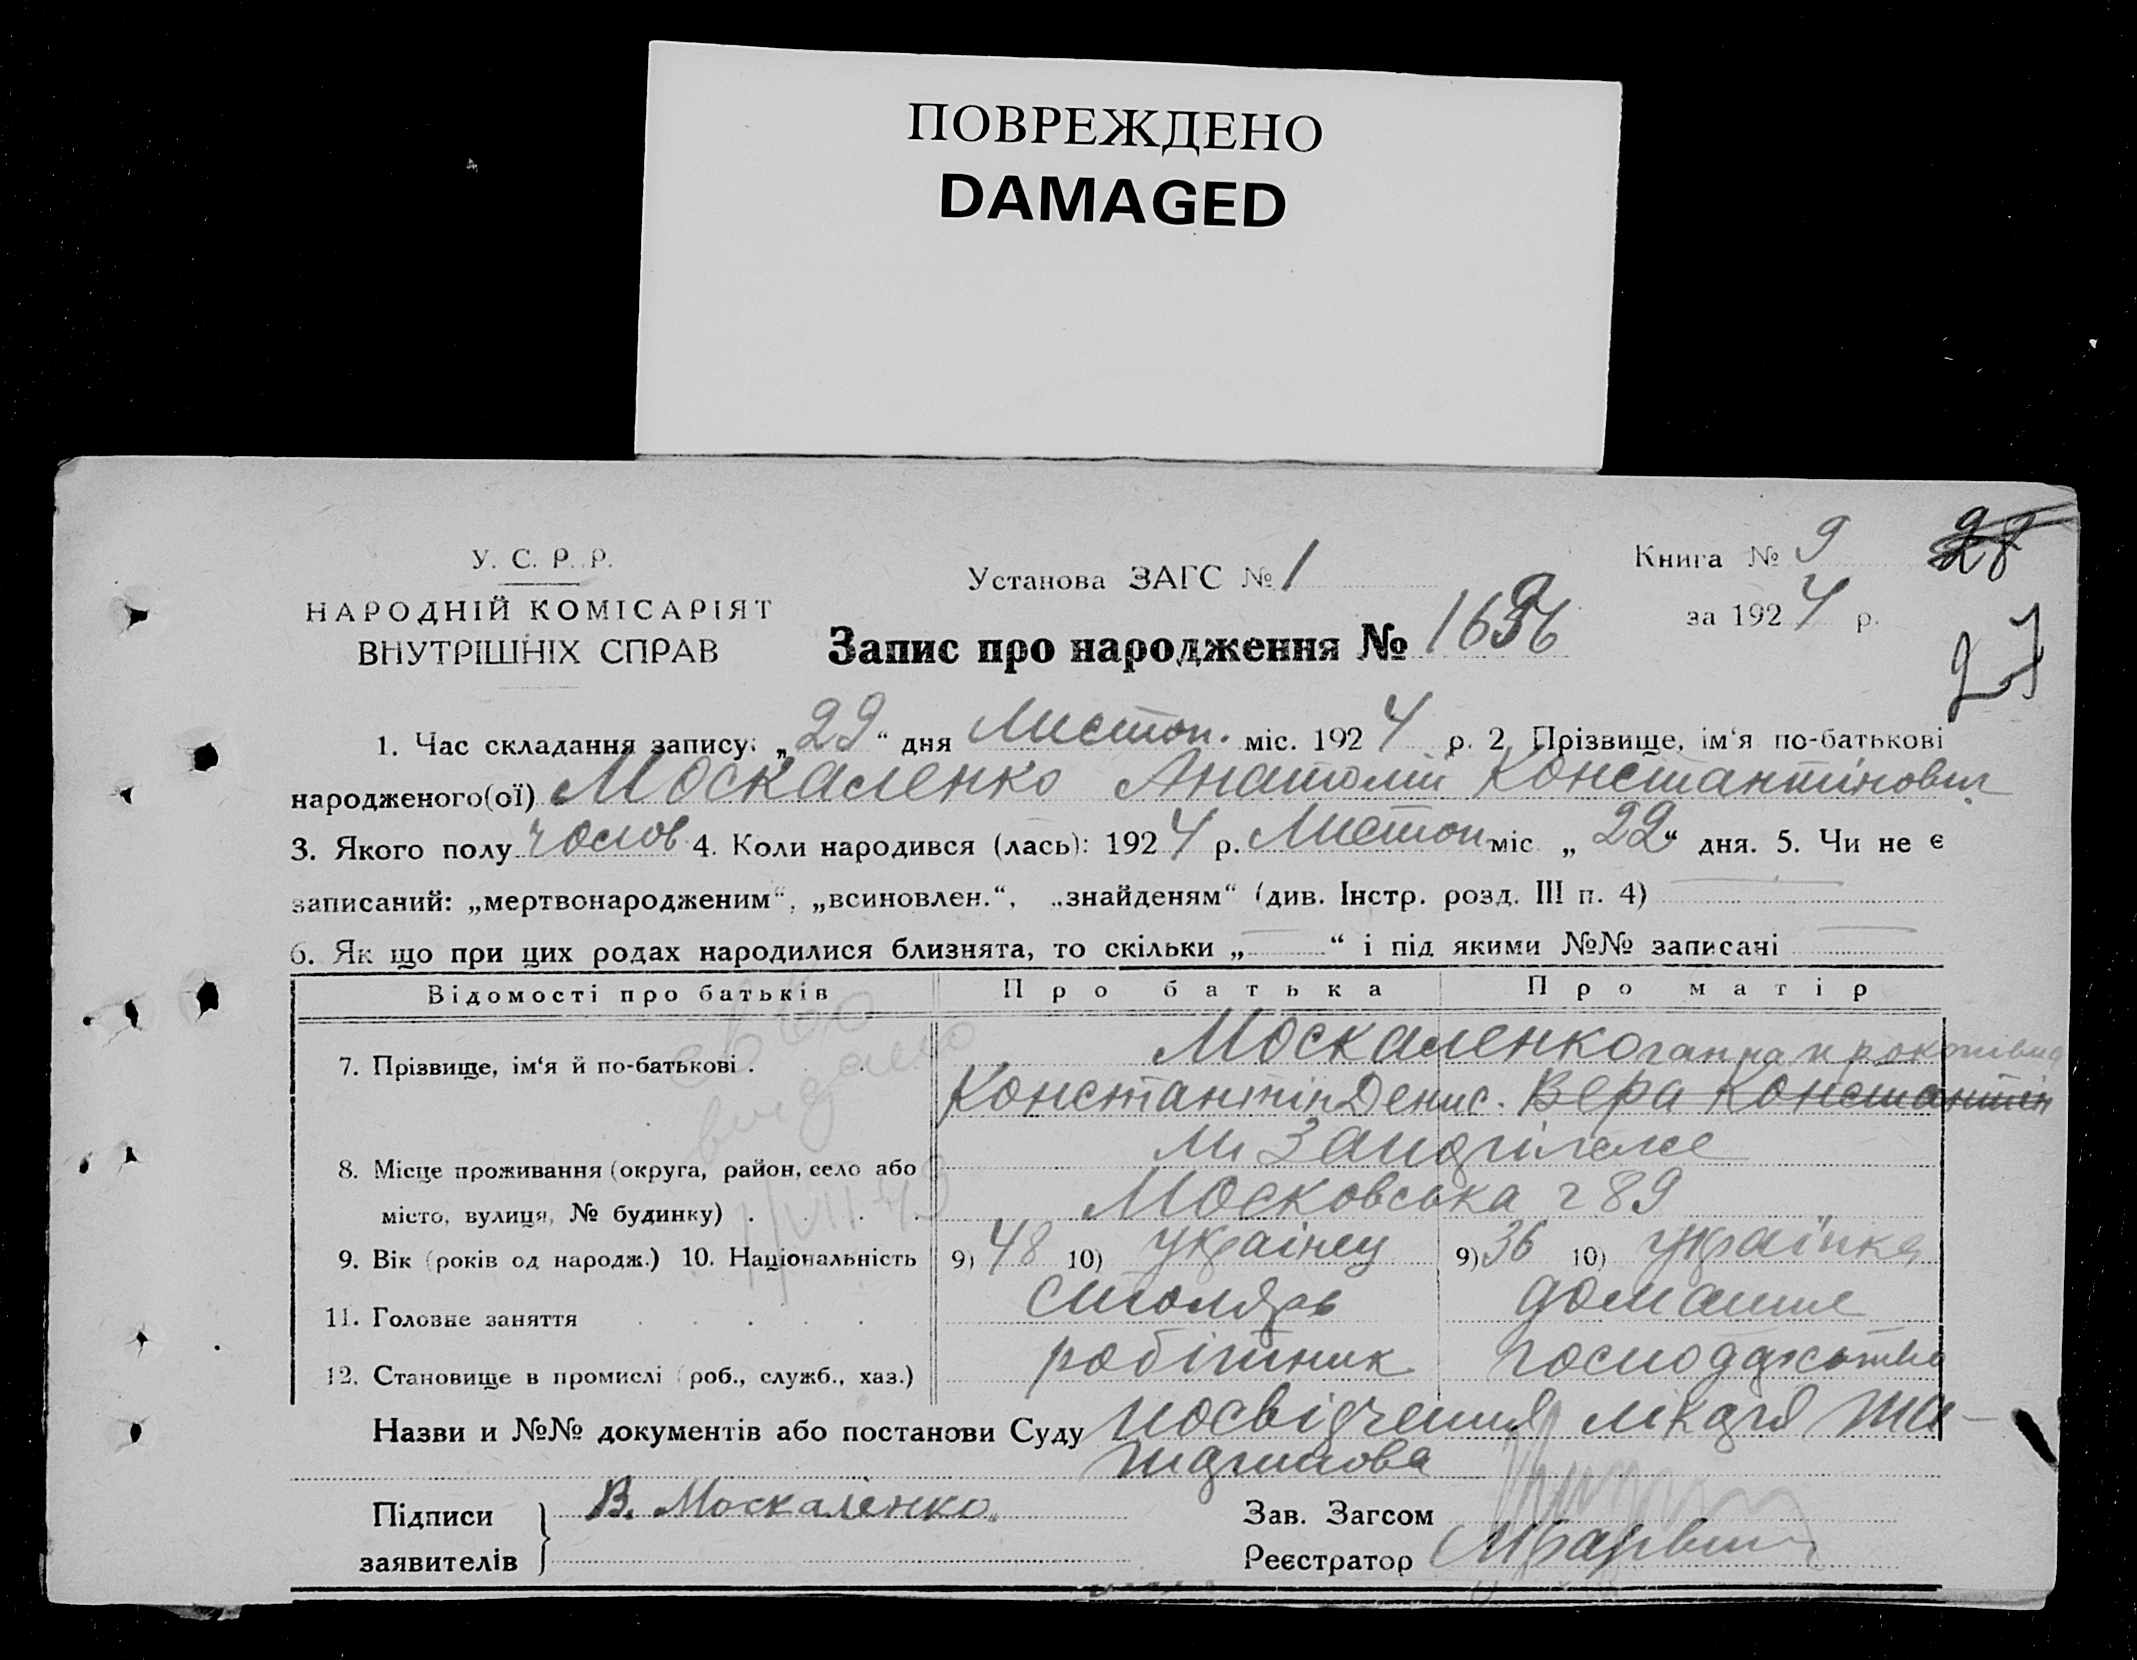 ПОВРЕЖДЕНО
DAMAGED
У. С. Р. Р.
НАРОДНІЙ КОМІСАРІЯТ
ВНУТРІШНІХ СПРАВ
Установа ЗАГС № 1
Запис про народження №
Книга № 9
28
за 1924 р.
27
1. Час складання запису: „29“ дня Листоп. міс. 1924 р. 2. Прізвище, ім‘я по-батькові
народженого(ої) Москаленко Анатолій Константінович
3. Якого полу чолов 4. Коли народився (лась): 1924 р. Листоп міс. „22“ дня. 5. Чи не є
записаний: „мертвонародженим“, „всиновлен.“, „знайденям“ (див. Інстр. розд. III п. 4)
6. Як що при цих родах народилися близнята, то скільки „ “ і під якими №№ записані
Відомості про батьків Про батька Про матір
7. Прізвище, ім‘я й по-батькові . Москаленко ганна
Константін Денис. Вера Константін
8. Місце проживання (округа, район, село або
місто, вулиця, № будинку) . Московська 89
9. Вік (років од народж.) 10. Національність 9) 48 10) українец 9) 36 10) українка
11. Головне заняття столярь домашне
12. Становище в промислі (роб., служб., хаз.) робітник господарство
Назви и №№ документів або постанови Суду посвідчення лікаря
Підписи В. Москаленко
заявителів
Зав. Загсом
Реєстратор